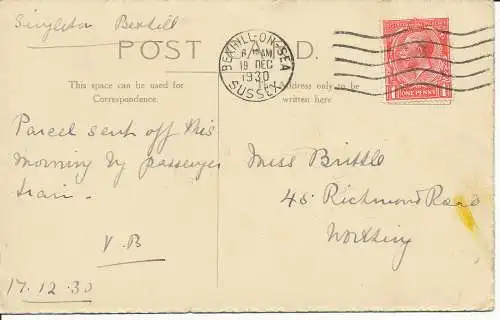 Singleton Bexhill
POST CARD.
BEXHILL-ON-SEA
AM
19 DEC
1930
SUSSEX
ONE PENNY
This space can be used for
Correspondence.
Address only to be
written here.
Parcel sent off this
Morning by passenger
train.
V.B
17.12.30
Miss Brittle
45 Richmond Road
Worthing